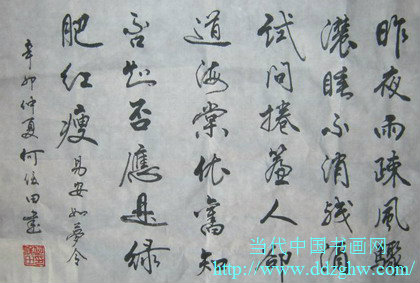 昨夜雨疎風驟
濃睡不消殘酒
試問捲簾人卻
道海棠依舊知
否知否應是綠
肥紅瘦 易安如夢令
辛卯仲夏何田書
当代中国书画网
http://www.ddzghw.com/